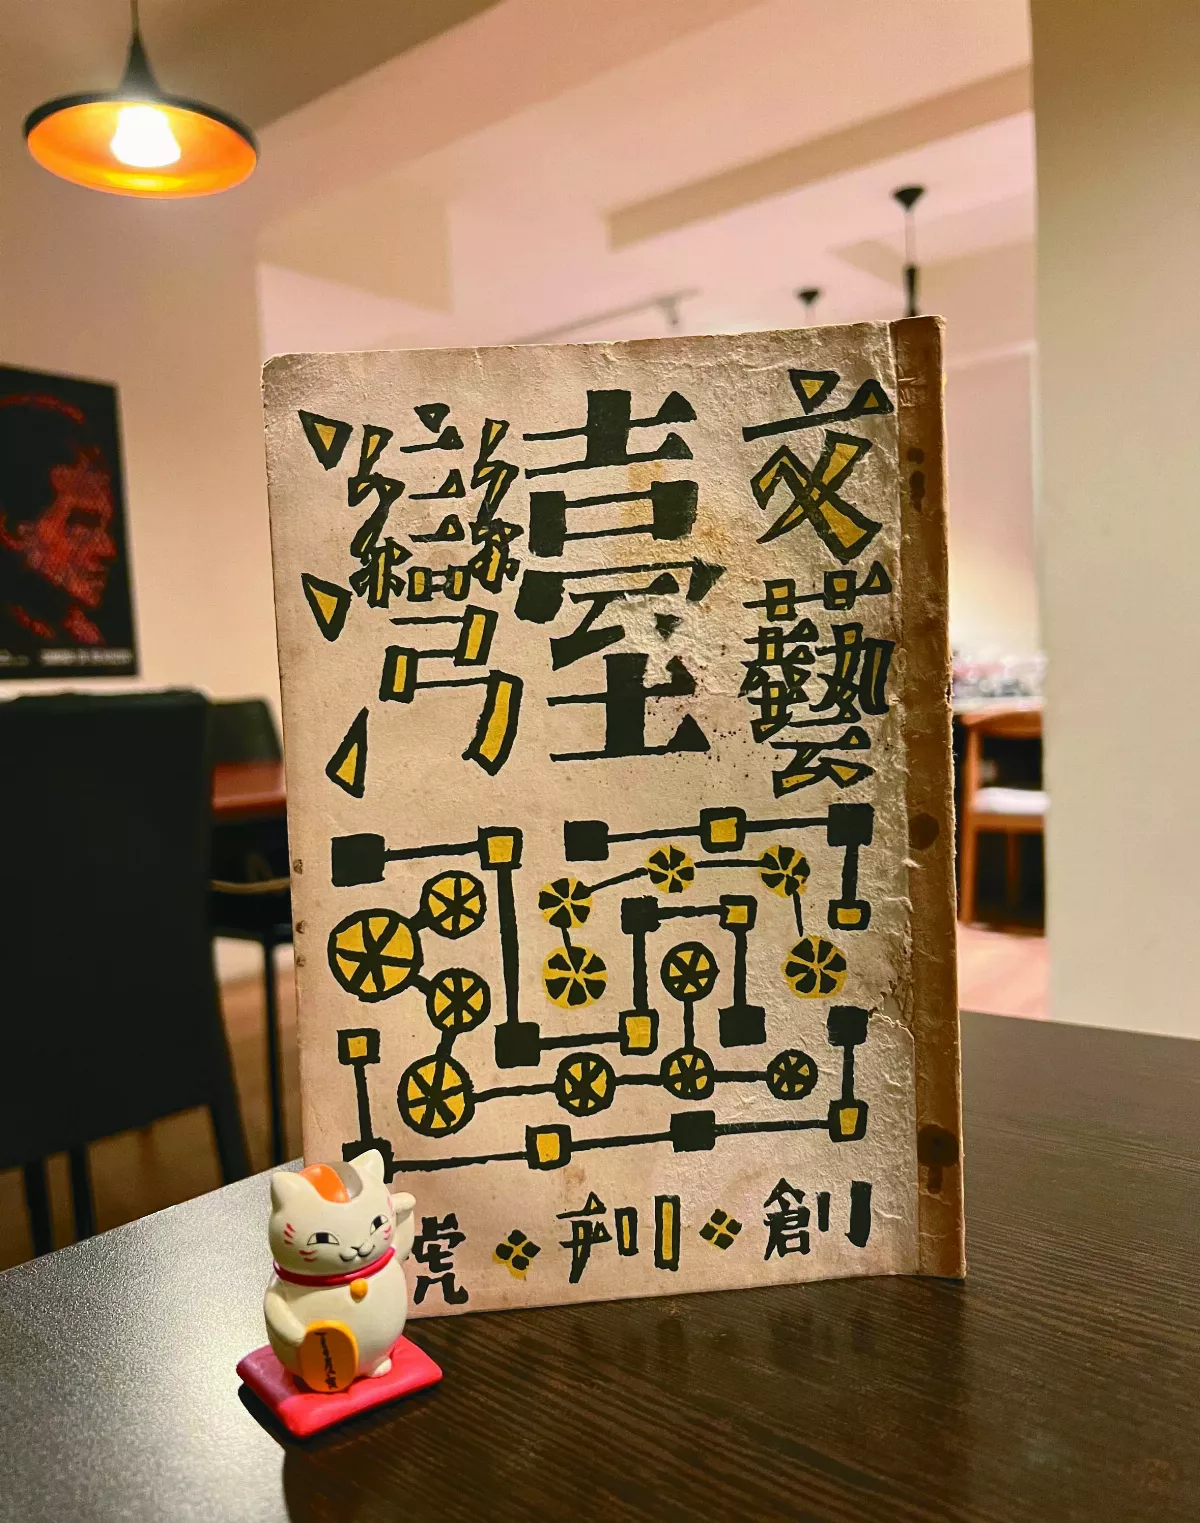 文藝
臺灣
創刊號